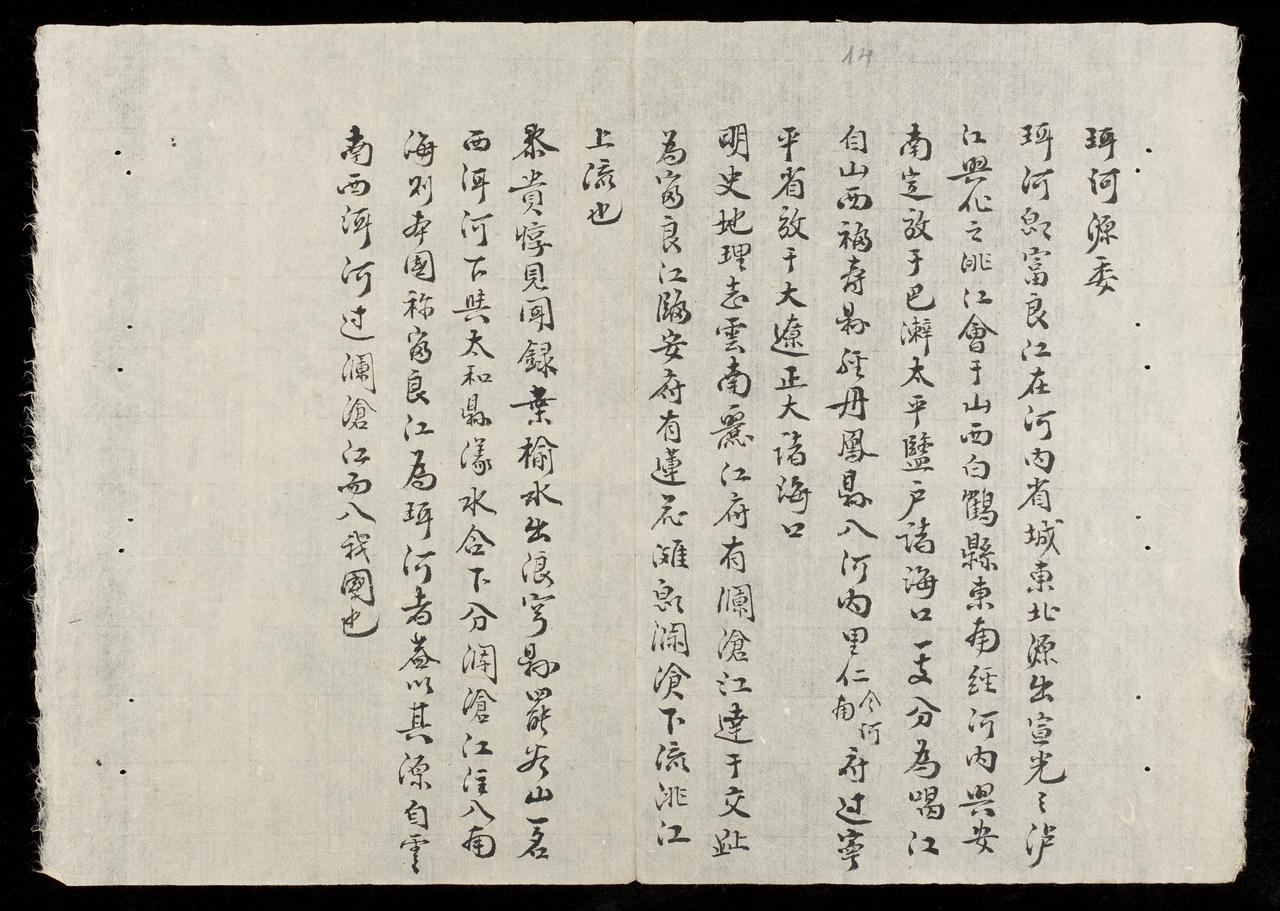 14
珥河源委
珥河即富良江在河内省城東北源出宣光之泸
江興化之洮江會于山西白鶴縣東南經河内興安
南定放于巴瀾太平鹽户諸海口一支分為喝江
自山西福寿县經丹鳳县入河内里仁今河南府过寧
平省放于大遼正大諸海口
明史地理志雲南麗江府有瀾滄江達于交趾
為富良江臨安府有蓮花滩即瀾滄下流洮江
上流也
黎貴惇見聞録葉榆水出浪穹县罷谷山一名
西洱河下與太和县漾水合下分瀾滄江注入南
海则本國称富良江為珥河者盖以其源自雲
南西洱河过瀾滄江而入我國也